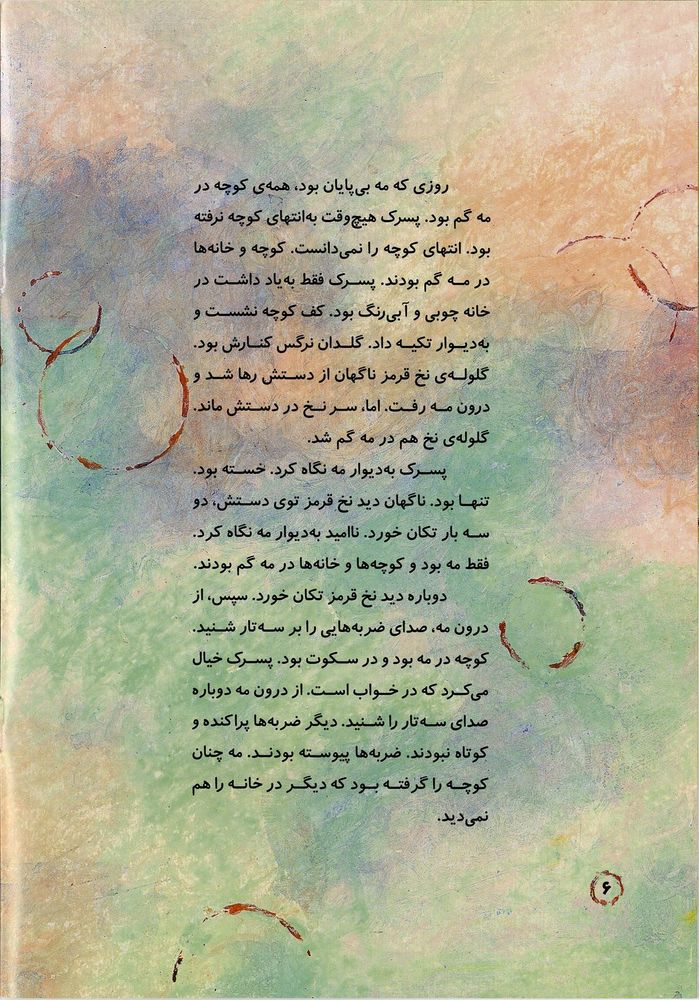 روزی که مه بی‌پایان بود، همه‌ی کوچه در
مه گم بود. پسرک هیچ‌وقت به‌انتهای کوچه نرفته
بود. انتهای کوچه را نمی‌دانست. کوچه و خانه‌ها
در مـه گم بودند. پسـرک فقط به‌یاد داشـت در
خانه چوبی و آبی‌رنگ بود. کف کوچه نشست و
به‌دیـوار تکیـه داد. گلـدان نرگس کنـارش بود.
گلولـه‌ی نخ قرمز ناگهان از دسـتش رها شـد و
درون مـه رفـت. اما، سـر نـخ در دسـتش ماند.
گلوله‌ی نخ هم در مه گم شد.
پسـرک به‌دیوار مه نگاه کرد. خسته بود.
تنهـا بود. ناگهان دید نخ قرمز توی دسـتش، دو
سـه بار تکان خورد. ناامید به‌دیوار مه نگاه کرد.
فقط مه بود و کوچه‌ها و خانه‌ها در مه گم بودند.
دوباره دید نخ قرمز تکان خورد. سپس، از
درون مه، صدای ضربه‌هایی را بر سـه‌تار شـنید.
کوچه در مه بود و در سـکوت بود. پسـرک خیال
می‌کـرد که در خـواب اسـت. از درون مه دوباره
صدای سـه‌تار را شـنید. دیگر ضربه‌ها پراکنده و
کوتاه نبودند. ضربه‌ها پیوسـته بودنـد. مه چنان
کوچـه را گرفتـه بـود که دیگـر در خانـه را هم
نمی‌دید.
۶